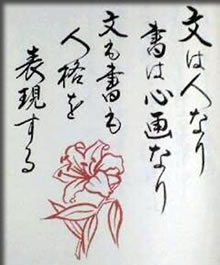 文は人なり
書は心画なり
文も書も
人格を
表現する